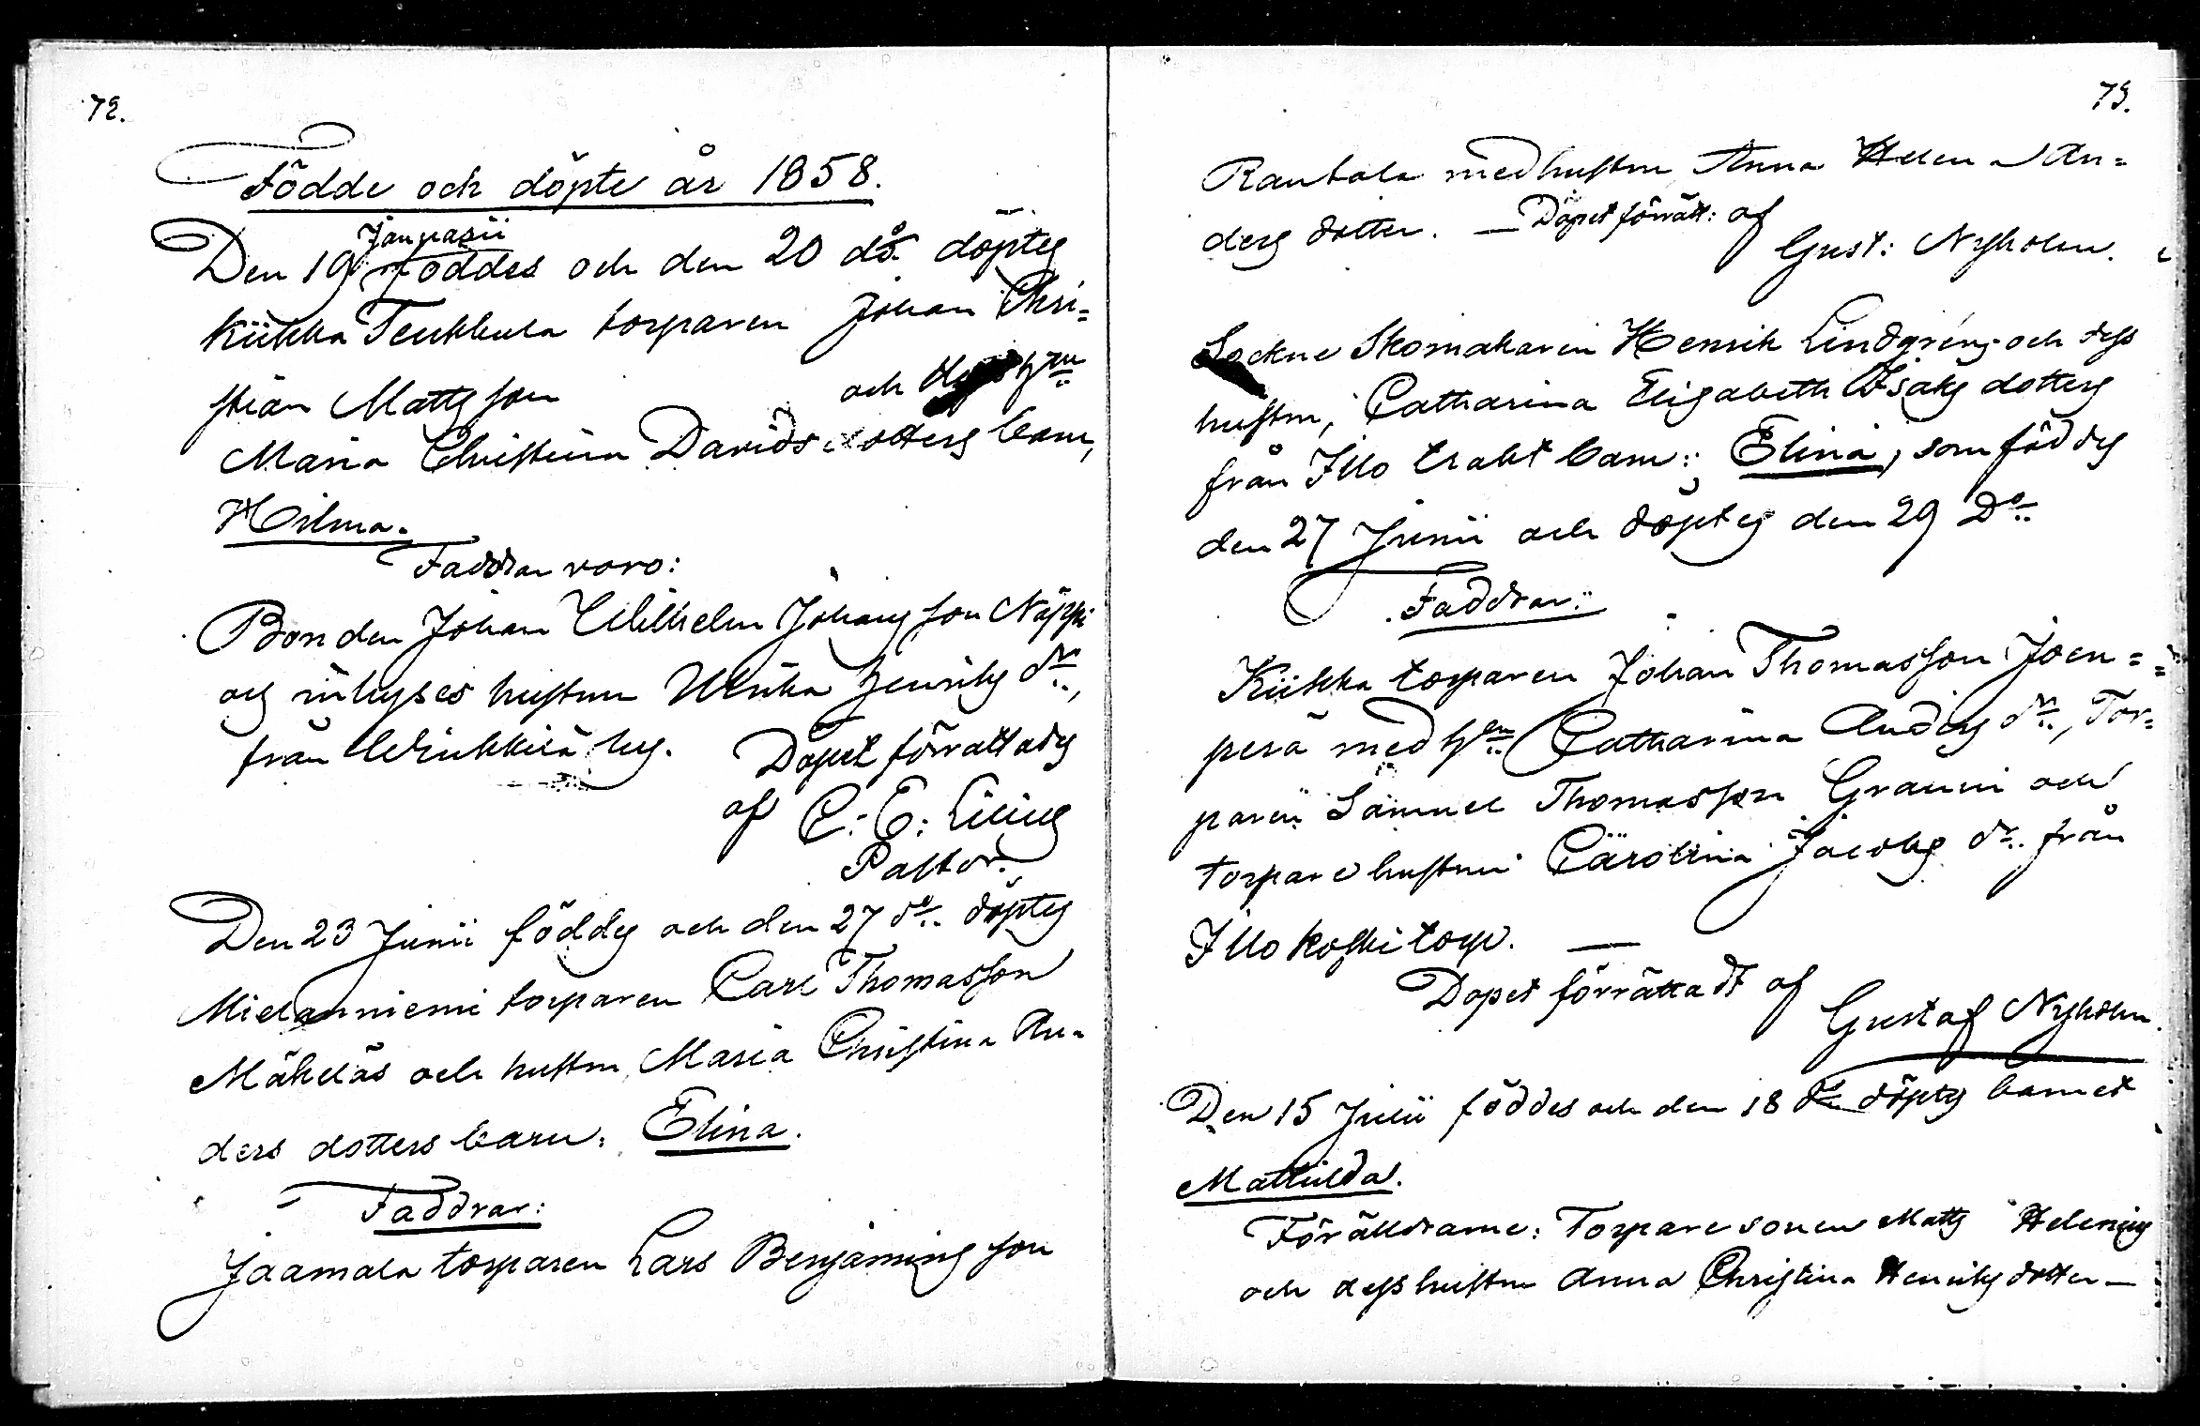 72.
Födde och döpte år 1858.
Januarii
Den 19 föddes och den 20 do döptes
Kiikka Teukkula torparen Johan Chri=
stian Mattsson och dess h:un
Maria Christina Davids dotters barn,
Hilma.
Faddrar voro:
Bonden Johan Wilhelm Johansson Näppi
och inhyses hustrun Ulrika Henriks dr.,
från by. Döpet förrättades
af C: E: Lilius
Pastor.
Den 23 Junii föddes och den 27 do. döptes
Mielanniemi torparen Carl Thomasson
Mäkeläs och hustru, Maria Christina An=
ders dotters barn: Elina.
Faddrar:
Jaamala torparen Lars Benjaminsson
73.
Rautala med hustru Anna Helena An=
ders dotter. — Döpet förrätt: af
Gust: Nyholm.
Sockne Skomakaren Henrik Lindgréns och dess
hustru, Catharina Elisabeth Isaks dotters
från Illo trakt barn: Elina, som föddes
den 27 Junii och döptes den 29 Do.
Faddrar:
Kiikka torparen Johan Thomasson Joen=
perä med h:un Catharina Anders dr., Tor=
paren Samuel Thomasson Granni och
torpare hustrun Carolina Jacobs dr. från
Illo koski torp. —
Dopet förrättadt af
Gustaf Nyholm.
Den 15 Julii föddes och den 18 do döptes barnet
Mathilda.
Föräldrarne: Torpare sonen Matts Helenius
och dess hustru Anna Christina Henriks dotter —